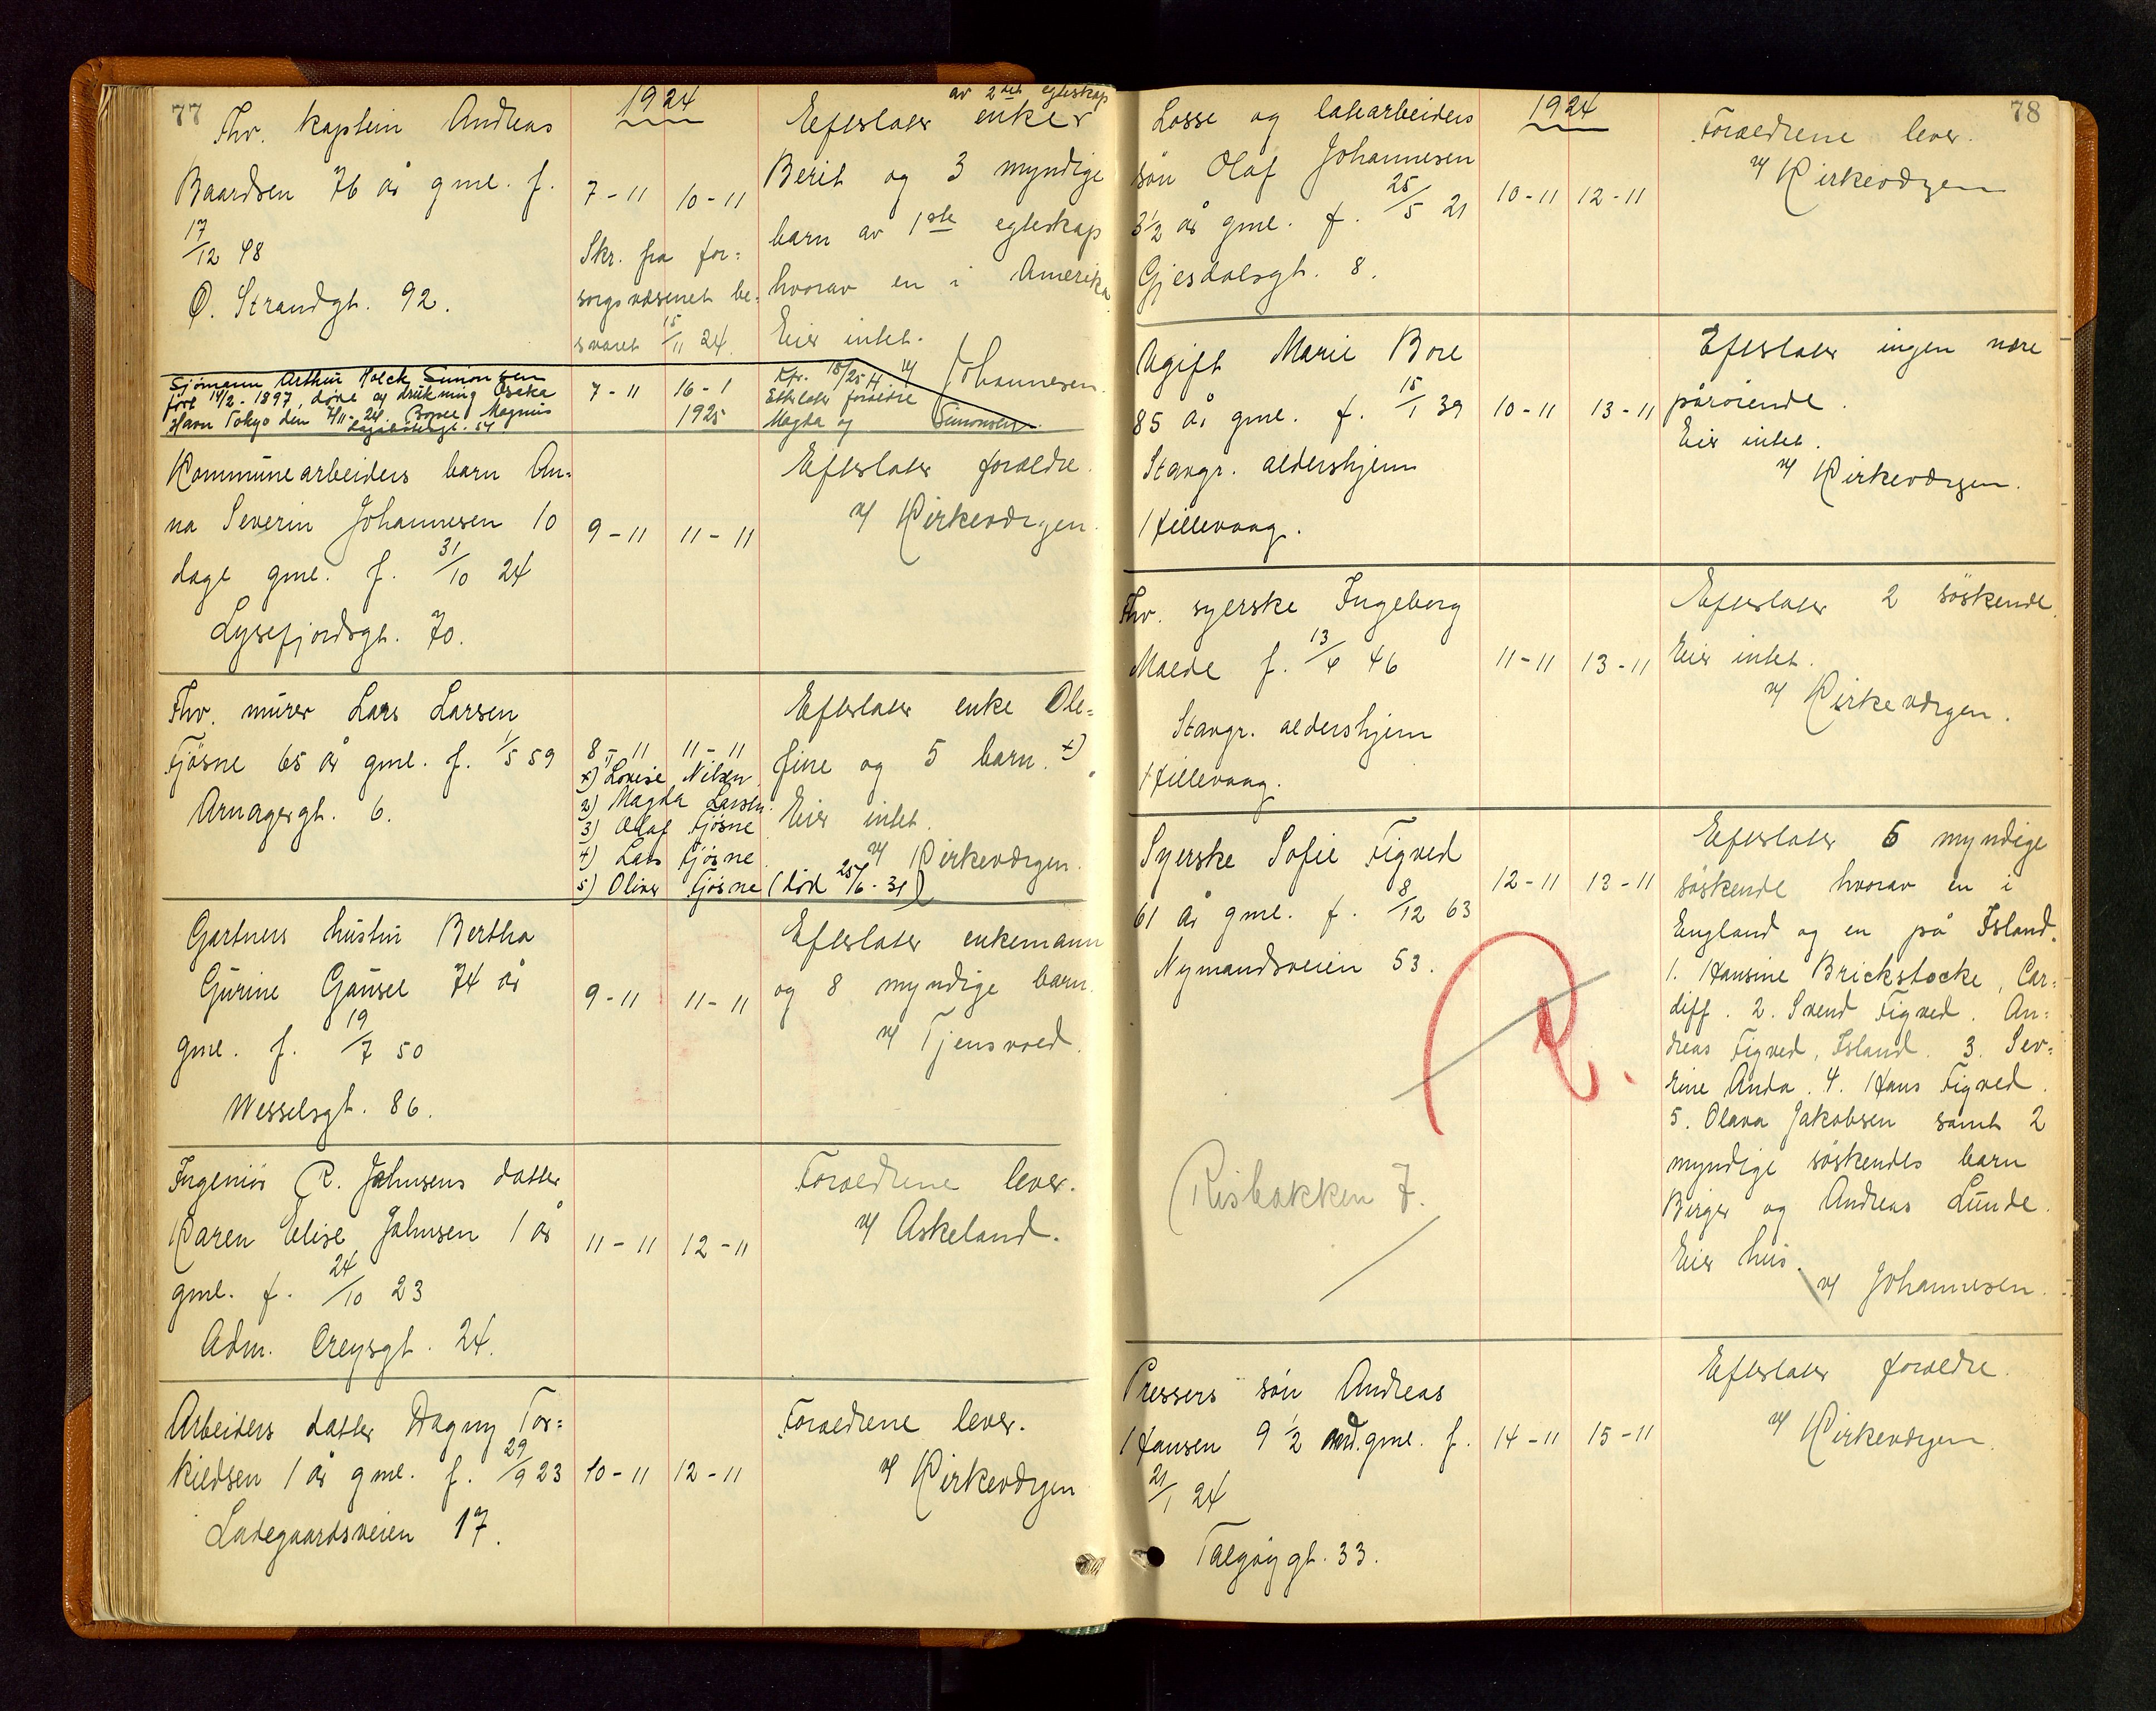 77
1924
Fhv. kaptein Andreas
Baardsen 76 år gml. f.
17/12 48
Ø. Strandgt. 92.
7-11 10-11
Skr. fra for=
sorgsvæsenet be=
svaret 15/11 24.
av 2det egteskap
Efterlater enke
Berit og 3 myndige
barn av 1ste egteskap
hvorav en i Amerika.
Eier intet.
v/ Johannesen.
Sjömann Arthur Holck Simonsen
född 14/2-1897, döde av drukning Osaka
Havn Tokyo den 7/11-24. Bopæl Magnus
Lagabøtersgt. 54
7-11 16-1
1925
Kfr. 18/25 H
Efterlater foreldre
Magda og Simonsen.
Kommunearbeiders barn An=
na Severin Johannesen 10
dage gml. f. 31/10 24
Lysefjordsgt. 70.
9-11 11-11
Efterlater foreldre.
v/ Kirkeværgen.
Fhv. murer Lars Larsen
Fjøsne 65 år gml. f. 1/5 59
Arnagergt. 6.
8-11 11-11
x) Lovise Nilsen
2) Magda Larsen.
3) Olaf Fjøsne
4) Lars Fjøsne
5) Oliver Fjøsne (död 25/6-31)
Efterlater enke Ole=
fine og 5 barn. x)
Eier intet.
v/ Kirkeværgen.
Gartners hustru Bertha
Gurine Gausel 74 år
gml. f. 19/7 50
Wesselsgt. 86.
9-11 11-11
Efterlater enkemann
og 8 myndige barn.
v/ Tjensvoed.
Ingeniør R. Johnsens datter
Karen Elise Johnsen 1 år
gml. f. 24/10 23
Adm. Creysgt. 24.
11-11 12-11
Foreldrene lever.
v/ Askeland.
Arbeiders datter Dagny Tor=
kildsen 1 år gml. f. 29/9 23
Ladegaardsveien 17.
10-11 12-11
Foreldrene lever.
v/ Kirkeværgen
78
1924
Losse og lastearbeiders
søn Olaf Johannesen
3½ år gml. f. 25/5 21
Gjesdalsgt. 8.
10-11 12-11
Foreldrene lever.
v/ Kirkeværgen
Ugift Marie Bore
85 år gml. f. 15/1 39
Stavgr. aldershjem
Hillevaag.
10-11 13-11
Efterlater ingen nære
pårørende.
Eier intet.
v/ Kirkeværgen.
Fhv. syerske Ingeborg
Maele f. 13/4 46
Stavgr. aldershjem
Hillevaag.
11-11 13-11
Efterlater 2 søskende.
Eier intet.
v/ Kirkeværgen.
Syerske Sofie Figved
61 år gml. f. 8/12 63
Nymandsveien 53.
12-11 13-11
R.
Risbakken 7.
Efterlater 6 myndige
søskende hvorav en i
England og en på Island.
1. Hansine Brickstocke, Car=
diff. 2. Svend Figved. An=
dreas Figved, Island. 3. Sev=
rine Anda. 4. Hans Figved.
5. Olava Jakobsen samt 2
myndige søskendes barn
Birger og Andreas Lunde.
Eier hus.
v/ Johannesen.
Pressers søn Andreas
Hansen 9½ mnd. gml. f.
21/1 24
Talgøygt. 33.
14-11 15-11
Efterlater foreldre.
v/ Kirkeværgen.